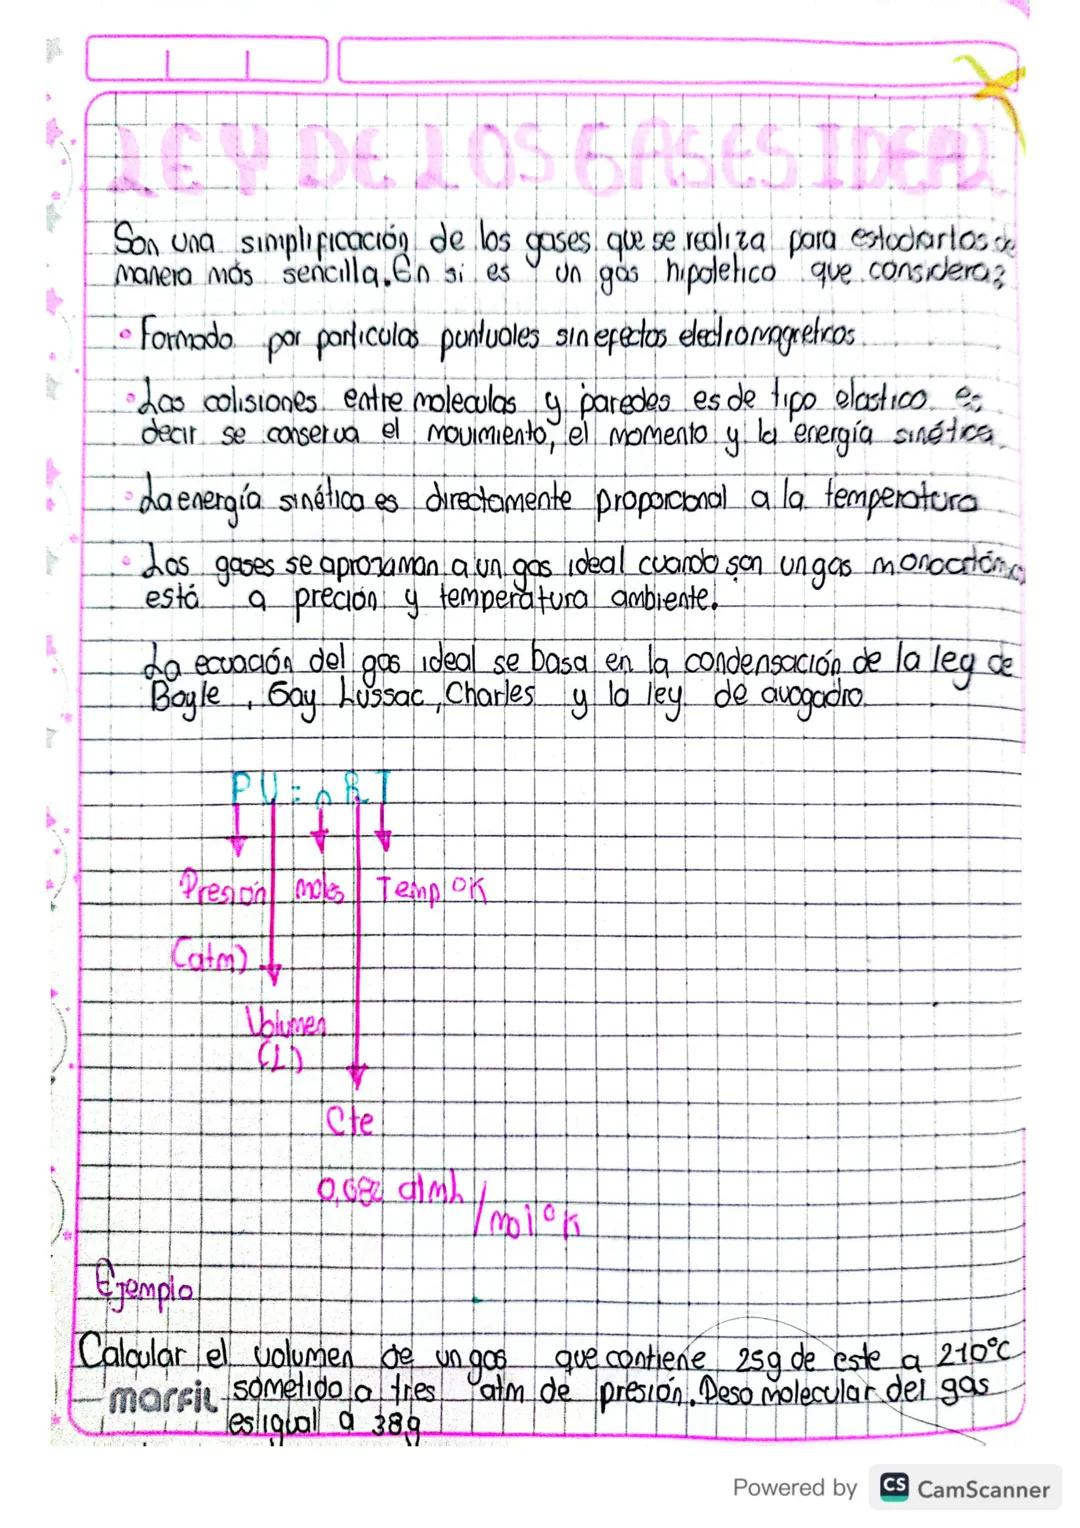 LEY DE LOS GASES IDEAL
Son una simplificación de los gases que se realiza para estodiarlos de
manera más sencilla. En si es un gas hipoletico que considera:
• Formado por particulas puntuales sin efectos electromagneticos
• Las colisiones entre moleculas y paredes es de tipo elastico es
decir se conserva el movimiento, el momento y la energía sinética
• La energía sinética es directamente proporcional a la temperatura
• Los gases se aproximan a un gas ideal cuando son un gas monoatómico
está a preción y temperatura ambiente.
La ecuación del gas ideal se basa en la condensación de la ley de
Boyle, Gay Lussac, Charles y la ley de avogadro
PV = nRT
Presión moles Temp °K
(atm)
Volumen
(L)
Cte
0,082 atm L
/mol °K
Ejemplo
Calcular el volumen de un gas que contiene 25g de este a 210°C
marfil sometido a tres atm de presión. Peso molecular del gas
es igual a 38g
Powered by CS CamScanner